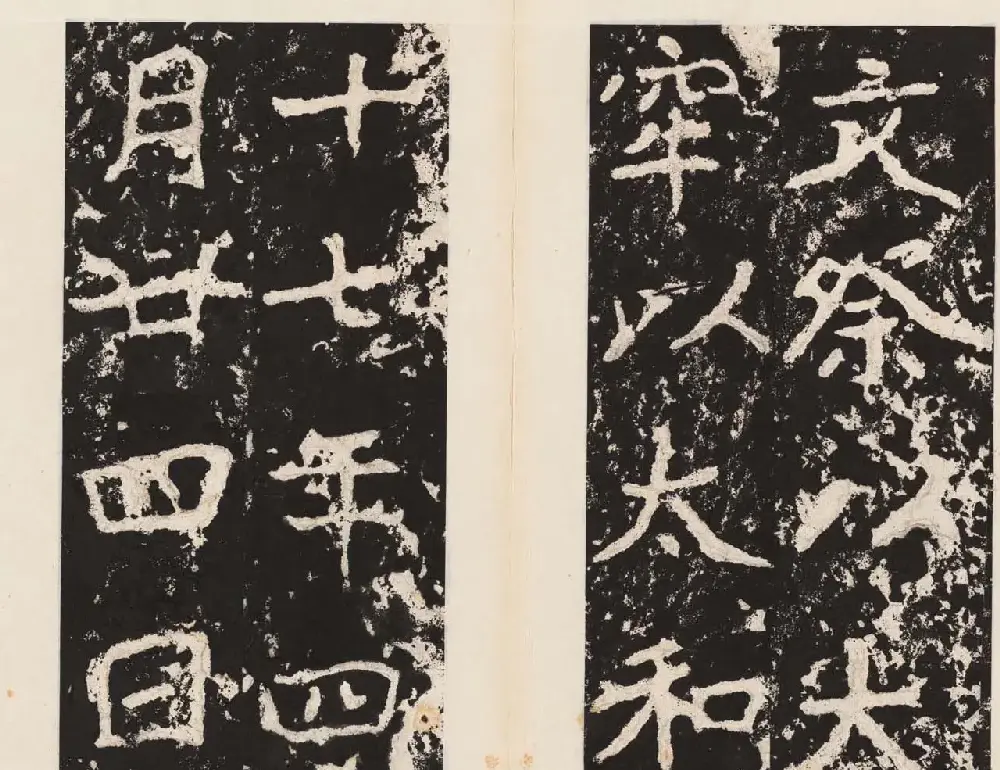 文祭以大
牢以太和
十七年四
月廿四日